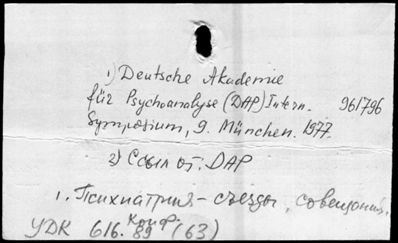 1) Deutsche Akademie
für Psychoanalyse (DAP) Intern. 961796
Symposium, 9. München. 1977.
2) Ссыл. от: DAP
1. Психиатрия - съезды, совещания.
Конф.
УДК 616.89 (63)